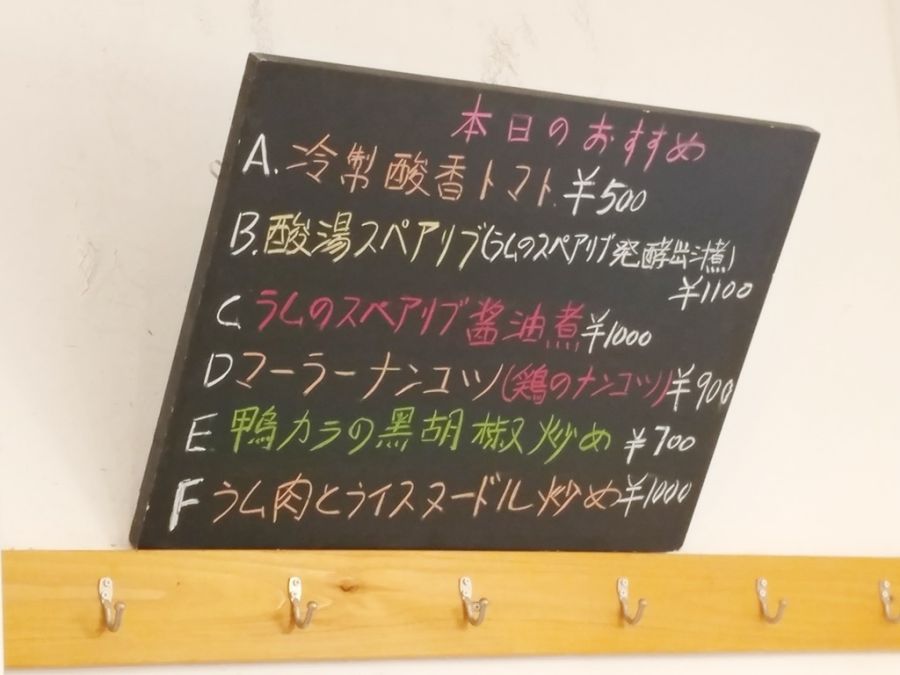 本日のおすすめ
A.冷製酸香トマト ¥500
B.酸湯スペアリブ(らムのスペアリブ発酵出汁煮)
¥1100
C らムのスペアリブ醤油煮 ¥1000
D マーラーナンコツ(鶏のナンコツ)¥900
E 鴨カラの黒胡椒炒め ¥700
F ラム肉とライスヌードル炒め ¥1000